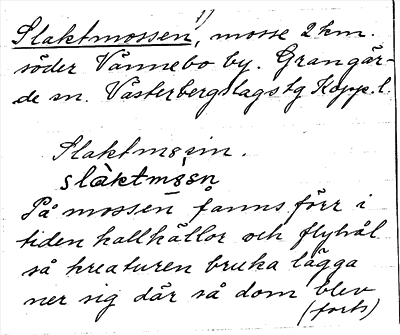 Slaktmossen 1), mosse 2 km.
söder Vånnebo by. Grangär-
de sn. Västerbergslags tg Kopp. l.
Slaktmȣsin.
slàktmȣsn̥
På mossen fanns förr i
tiden kallkällor och flyhål
så kreaturen bruka lägga
ner sig där så dom blev
(forts)